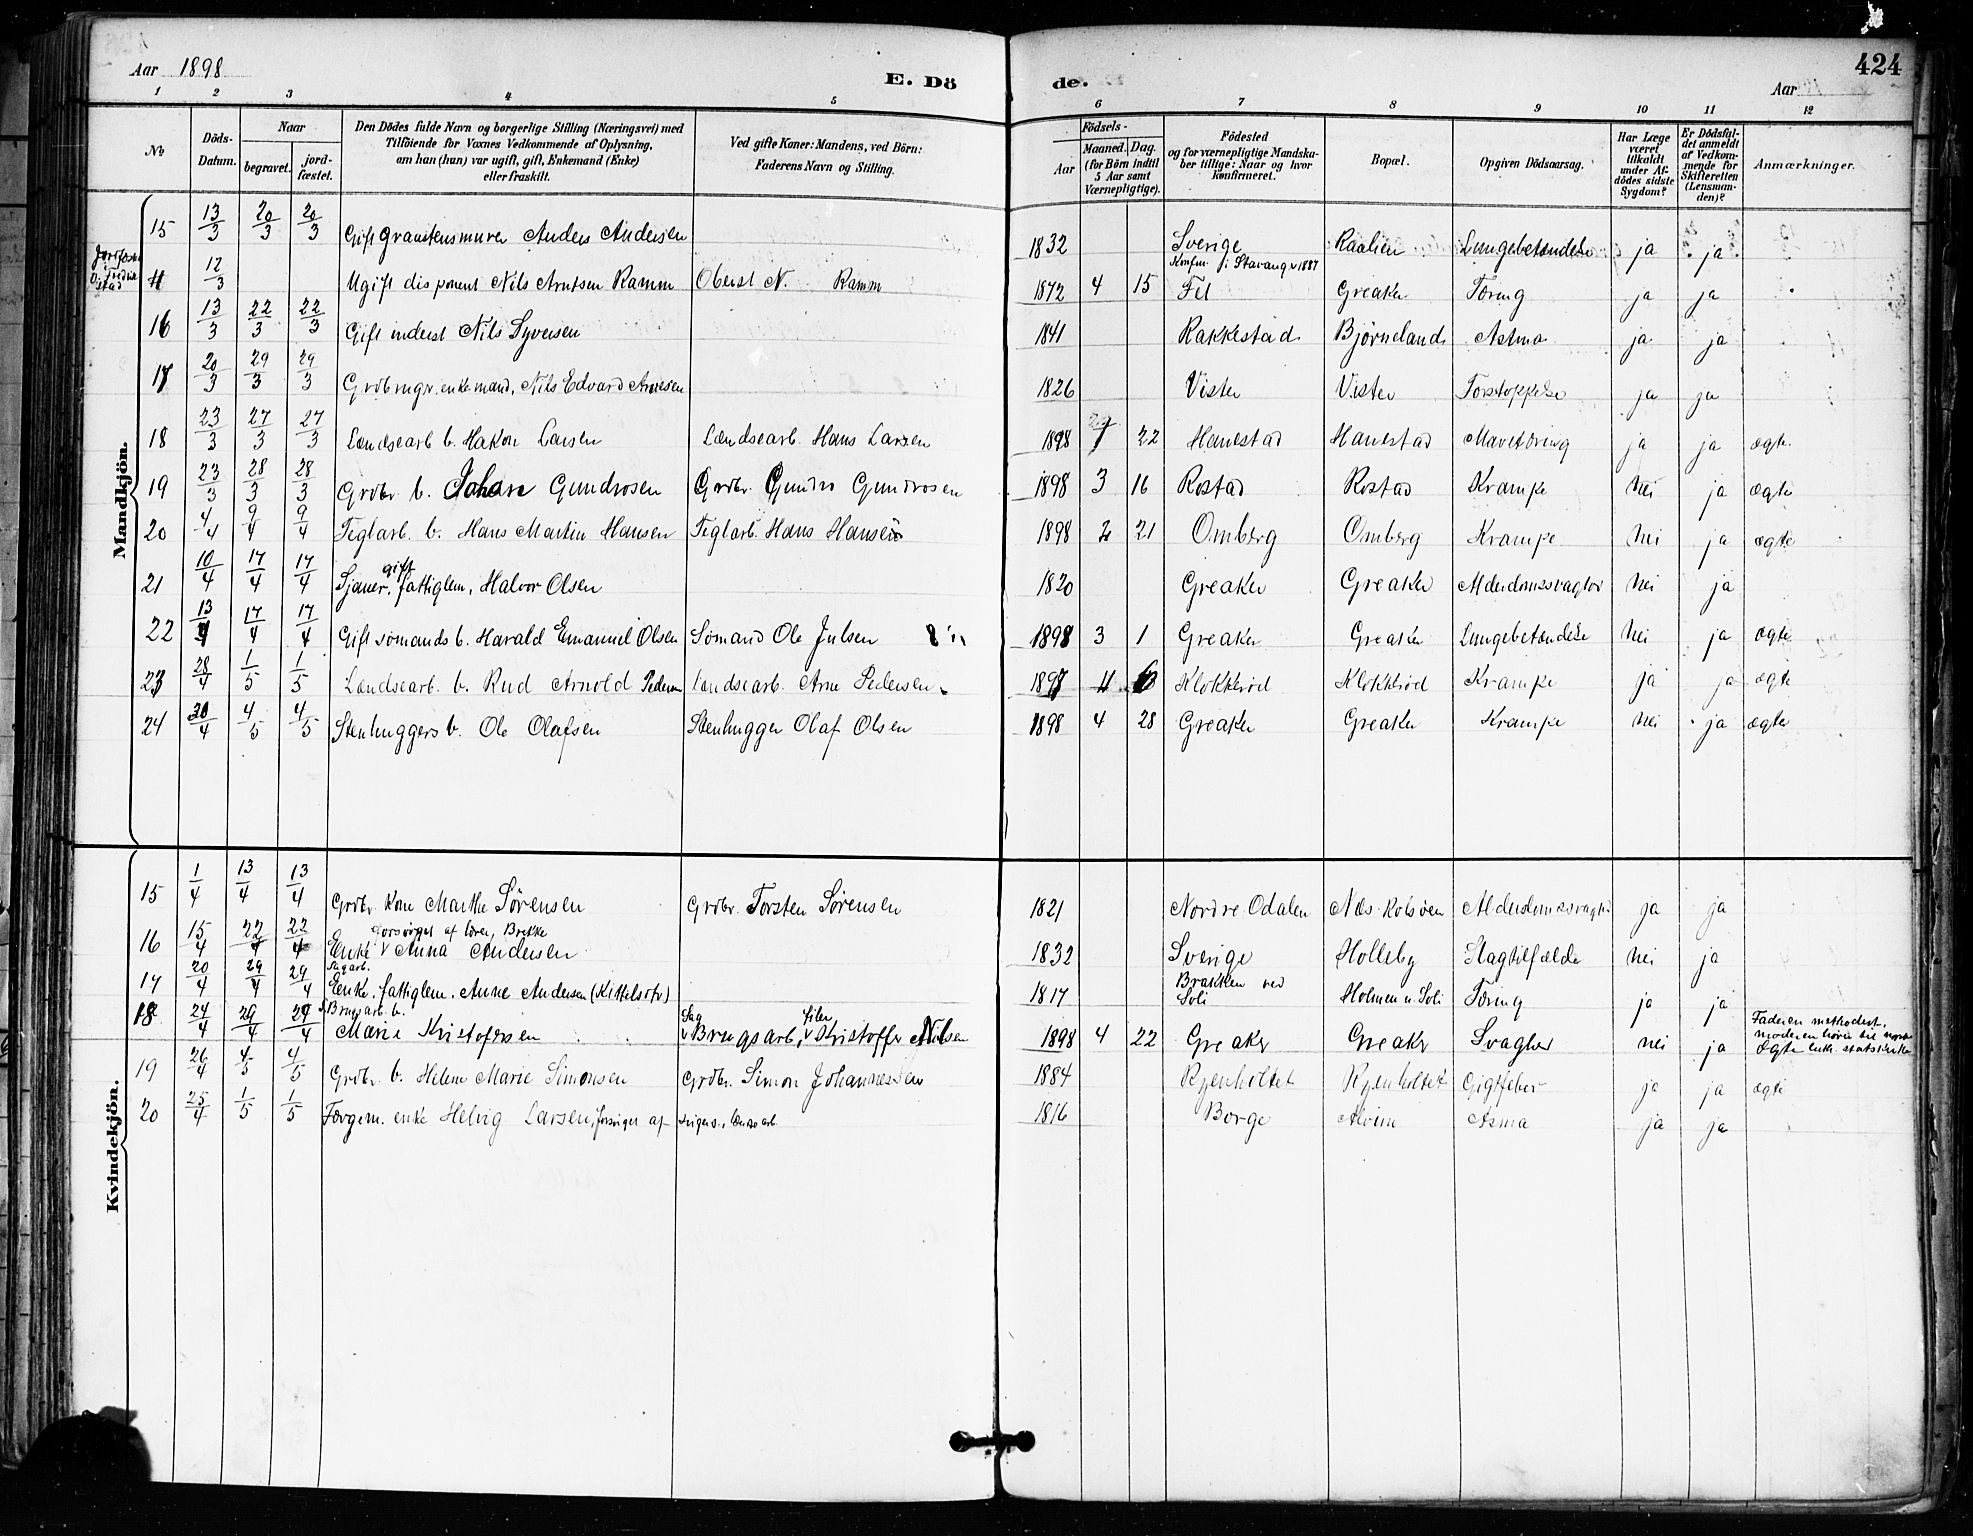 424
Aar 1898
E. Dö
de.
Aar
1 2 3 4 5 6 7 8 9 10 11 12
No
Döds-Datum.
Naar
begravet.
jord-fæstet.
Den Dödes fulde Navn og borgerlige Stilling (Næringsvei) med
Tilföiende for Voxnes Vedkommende af Oplysning,
om han (hun) var ugift, gift, Enkemand (Enke)
eller fraskilt.
Ved gifte Koner: Mandens, ved Börn:
Faderens Navn og Stilling.
Födsels-
Aar
Maaned. Dag.
(for Börn indtil
5 Aar samt
Værnepligtige).
Födested
og for værnepligtige Mandska-
ber tillige: Naar og hvor
konfirmeret.
Bopæl.
Opgiven Dödsaarsag.
Har Læge
været
tilkaldt
under Af-
dödes sidste
Sygdom?
Er Dödsfal-
det anmeldt
af Vedkom-
mende for
Skifteretten
(Lensman-
den)?
Anmærkninger.
Mandkjön.
15 13/3 20/3 20/3 Gift granitensmurer Anders Andersen 1832 Sverige Raalien Lungebetændelse ja ja
12/3 Ugift disponent Nils Arntsen Ramm Oberst N. Ramm 1872 4 15 Konfm. i Stavanger 1887 Greaker Tæring ja ja
16 13/3 22/3 22/3 Gift inderst Nils Syversen 1841 Rakkestad Bjørneland Astma ja ja
17 20/3 29/3 29/3 Grdbrugr. enkemand, Nils Edvard Arnesen 1826 Vister Vister Forstoppelse ja ja
18 23/3 27/3 27/3 Lændsearb b. Hakon Larsen Lændsearb. Hans Larsen 1898 1 22 Hanestad Hanestad Mavetæring ja ja ægte
19 23/3 28/3 28/3 Grdbr b. Johan Gundrosen Grdbr. Gundro Gundrosen 1898 3 16 Rostad Rostad Krampe nei ja ægte
20 4/4 9/4 9/4 Teglarb. b. Hans Martin Hansen Teglarb. Hans Hansen 1898 2 21 Omberg Omberg Krampe nei ja ægte
21 10/4 17/4 17/4 Sjauer, gift fattiglem, Halvor Olsen 1820 Greaker Greaker Alderdomssvaghed nei ja
22 13/4 17/4 17/4 Gift sømands b. Harald Emanuel Olsen Sømand Ole Julsen 1898 3 1 Greaker Greaker Lungebetændelse nei ja ægte
23 28/4 1/5 1/5 Lændsearb. b. Rud Arnold Pedersen Lændsearb. Arne Pedersen 1897 11 6 Klokkrød Klokkrød Krampe ja ja ægte
24 30/4 4/5 4/5 Stenhuggers b. Ole Olafsen Stenhugger Olaf Olsen 1898 4 28 Greaker Greaker Krampe nei ja ægte
Kvindekjön.
15 1/4 13/4 13/4 Grdbr. kone Marthe Sørensen Grdbr. Torsten Sørensen 1821 Nordre Odalen Næs Kolsøen Alderdomssvaghed ja ja
16 15/4 22/4 22/4 Enke forsørget af lærer, Brekke Anna Andersen 1832 Sverige Holleby Slagtilfælde nei ja
17 20/4 29/4 29/4 Sagarb. Enke, fattiglem. Anne Andersen (Kittelsrøv) 1817 Brakken ved Soli Holmen u. Soli Tæring ja ja
18 24/4 29/4 29/4 Brugsarb b. Marie Kristofersen Sag Brugsarb, filer Kristoffer Nilsen 1898 4 22 Greaker Greaker Svaghed nei ja Faderen methodist, moderen hører til norske stats kirke Ægte
19 26/4 4/5 4/5 Grdbr. b. Helene Marie Simonsen Grdbr. Simon Johannessen 1884 Ryenholtet Ryenholtet Gigtfeber ja ja ægte
20 25/4 1/5 1/5 Færgem. enke Helvig Larsen, forsørget af svigers., lænsearb 1816 Borge Alvim Asma ja ja